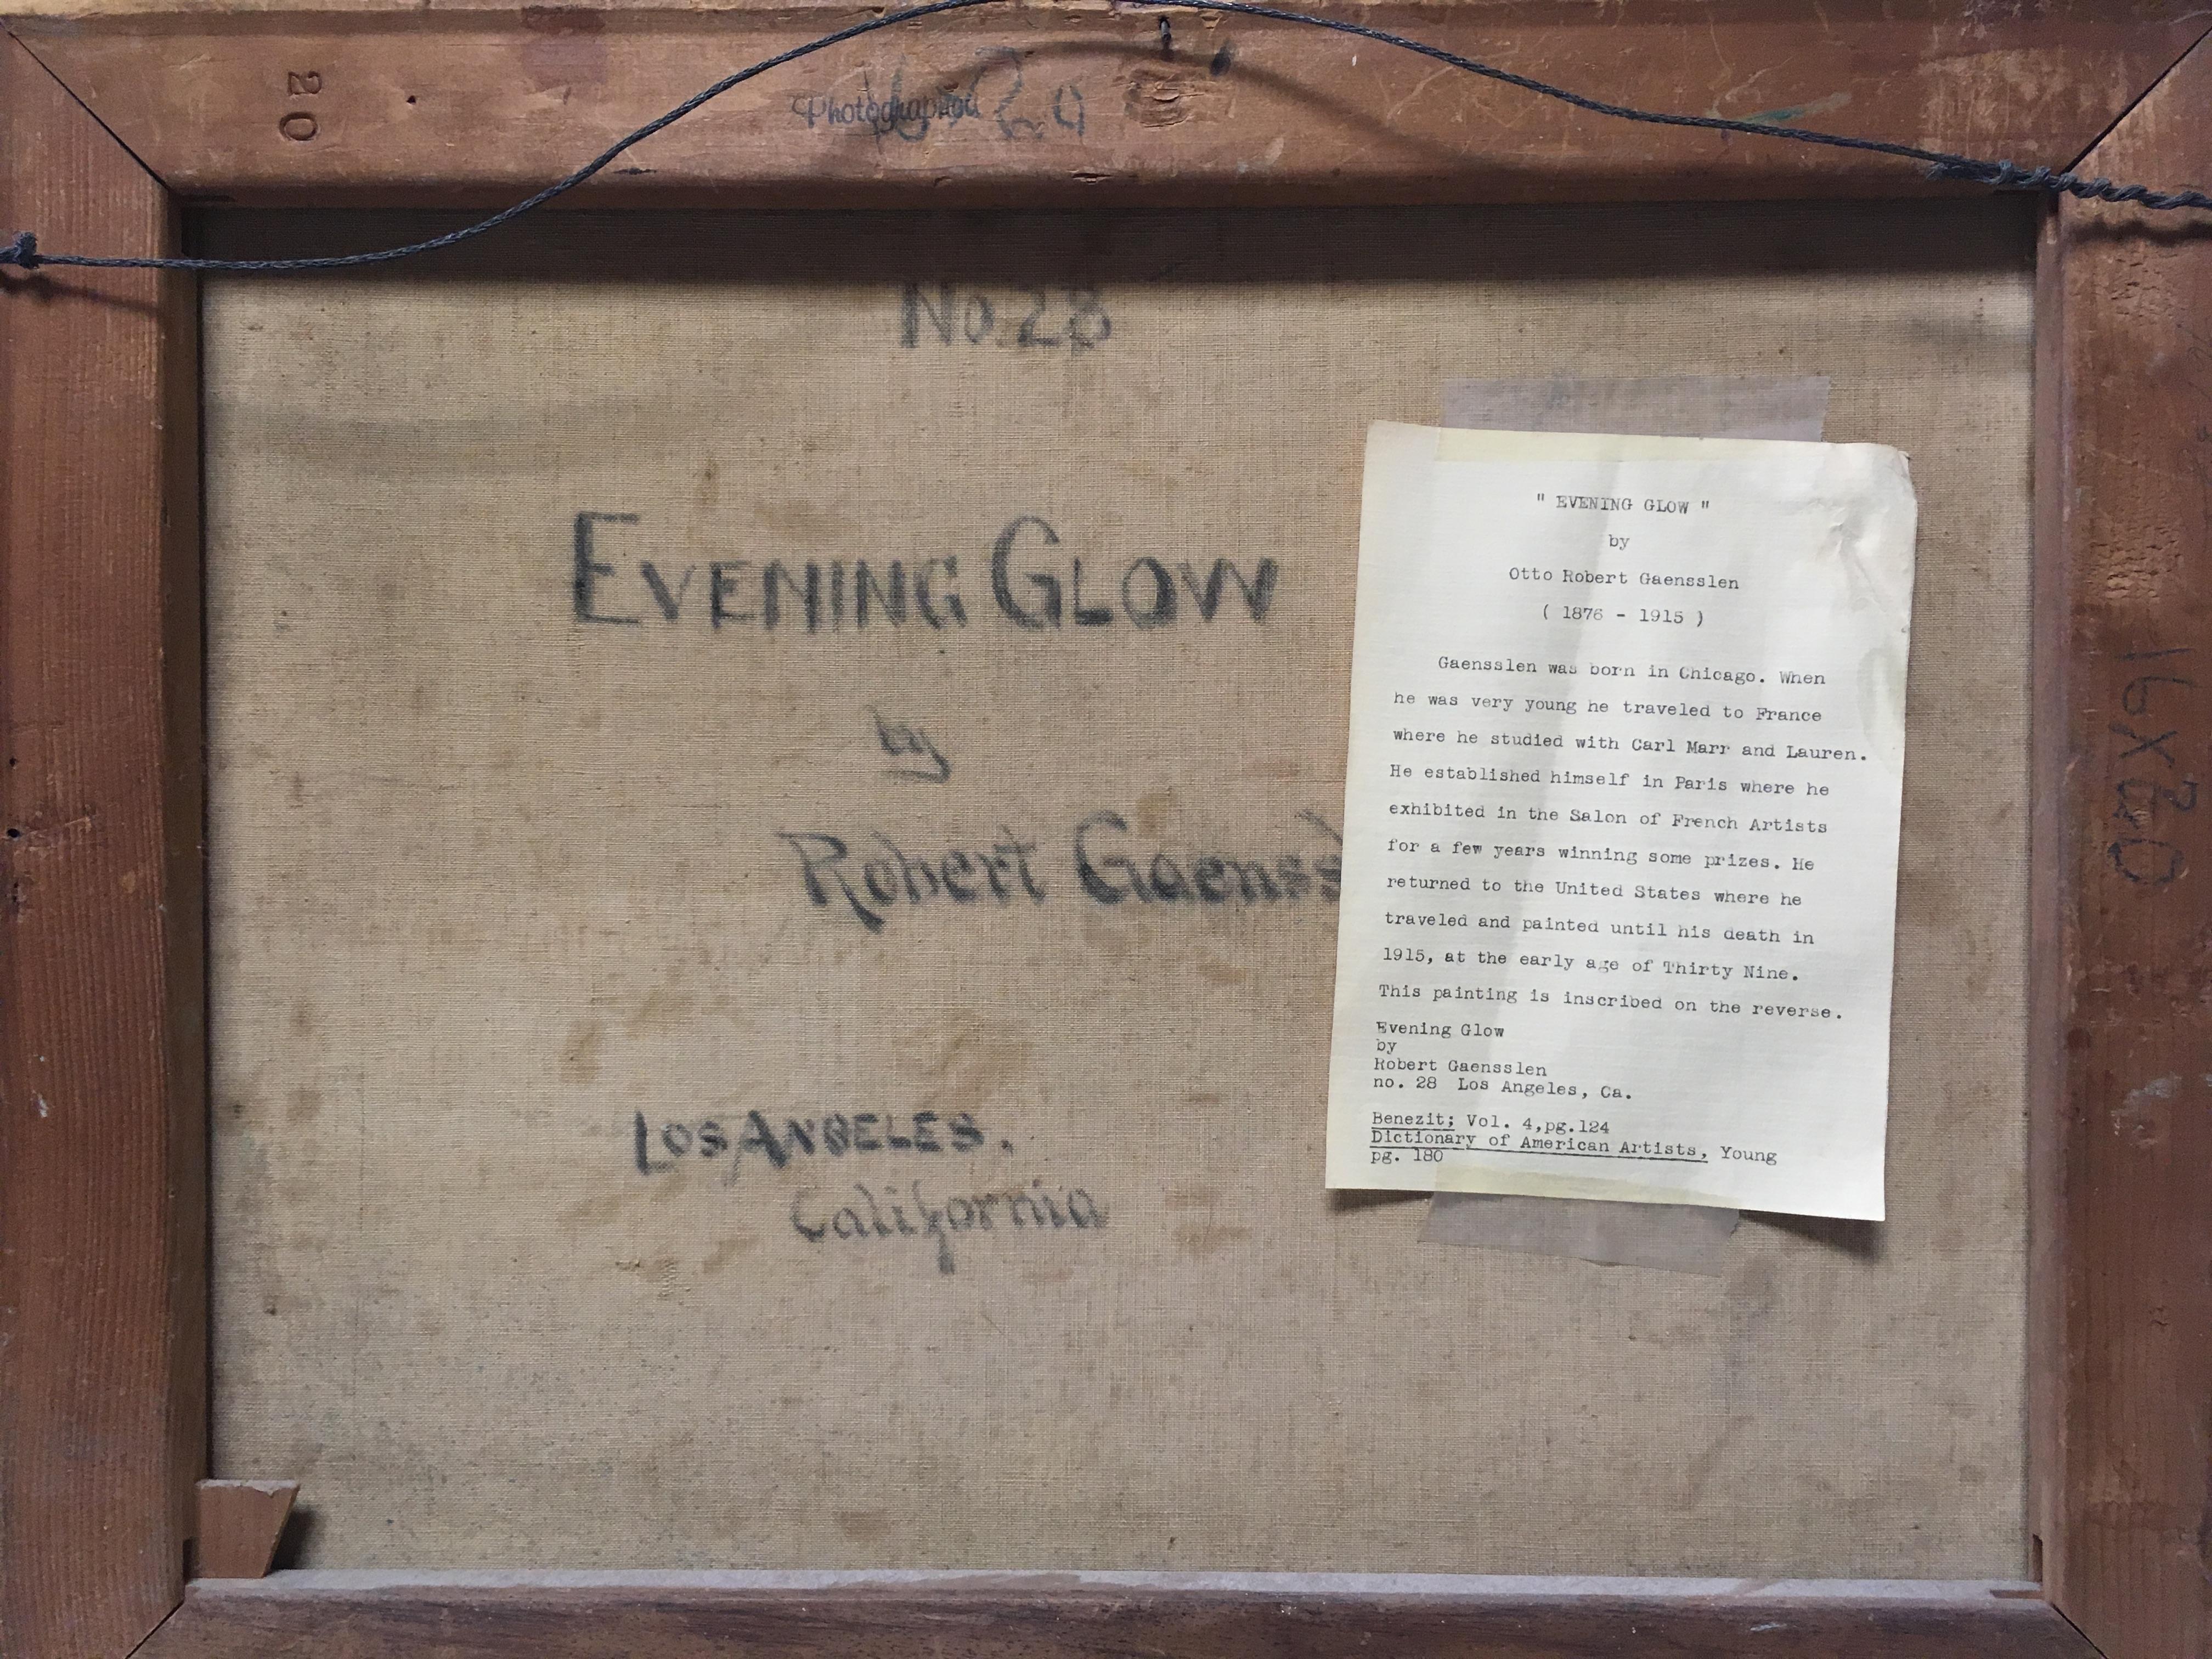 20
Photographed
No 28
EVENING GLOW
by
Robert Gaenss
LOS ANGELES.
California
" EVENING GLOW "
by
Otto Robert Gaensslen
( 1876 - 1915 )
Gaensslen was born in Chicago. When
he was very young he traveled to France
where he studied with Carl Marr and Lauren.
He established himself in Paris where he
exhibited in the Salon of French Artists
for a few years winning some prizes. He
returned to the United States where he
traveled and painted until his death in
1915, at the early age of Thirty Nine.
This painting is inscribed on the reverse.
Evening Glow
by
Robert Gaensslen
no. 28 Los Angeles, Ca.
Benezit; Vol. 4,pg.124
Dictionary of American Artists, Young
pg. 180
16x20